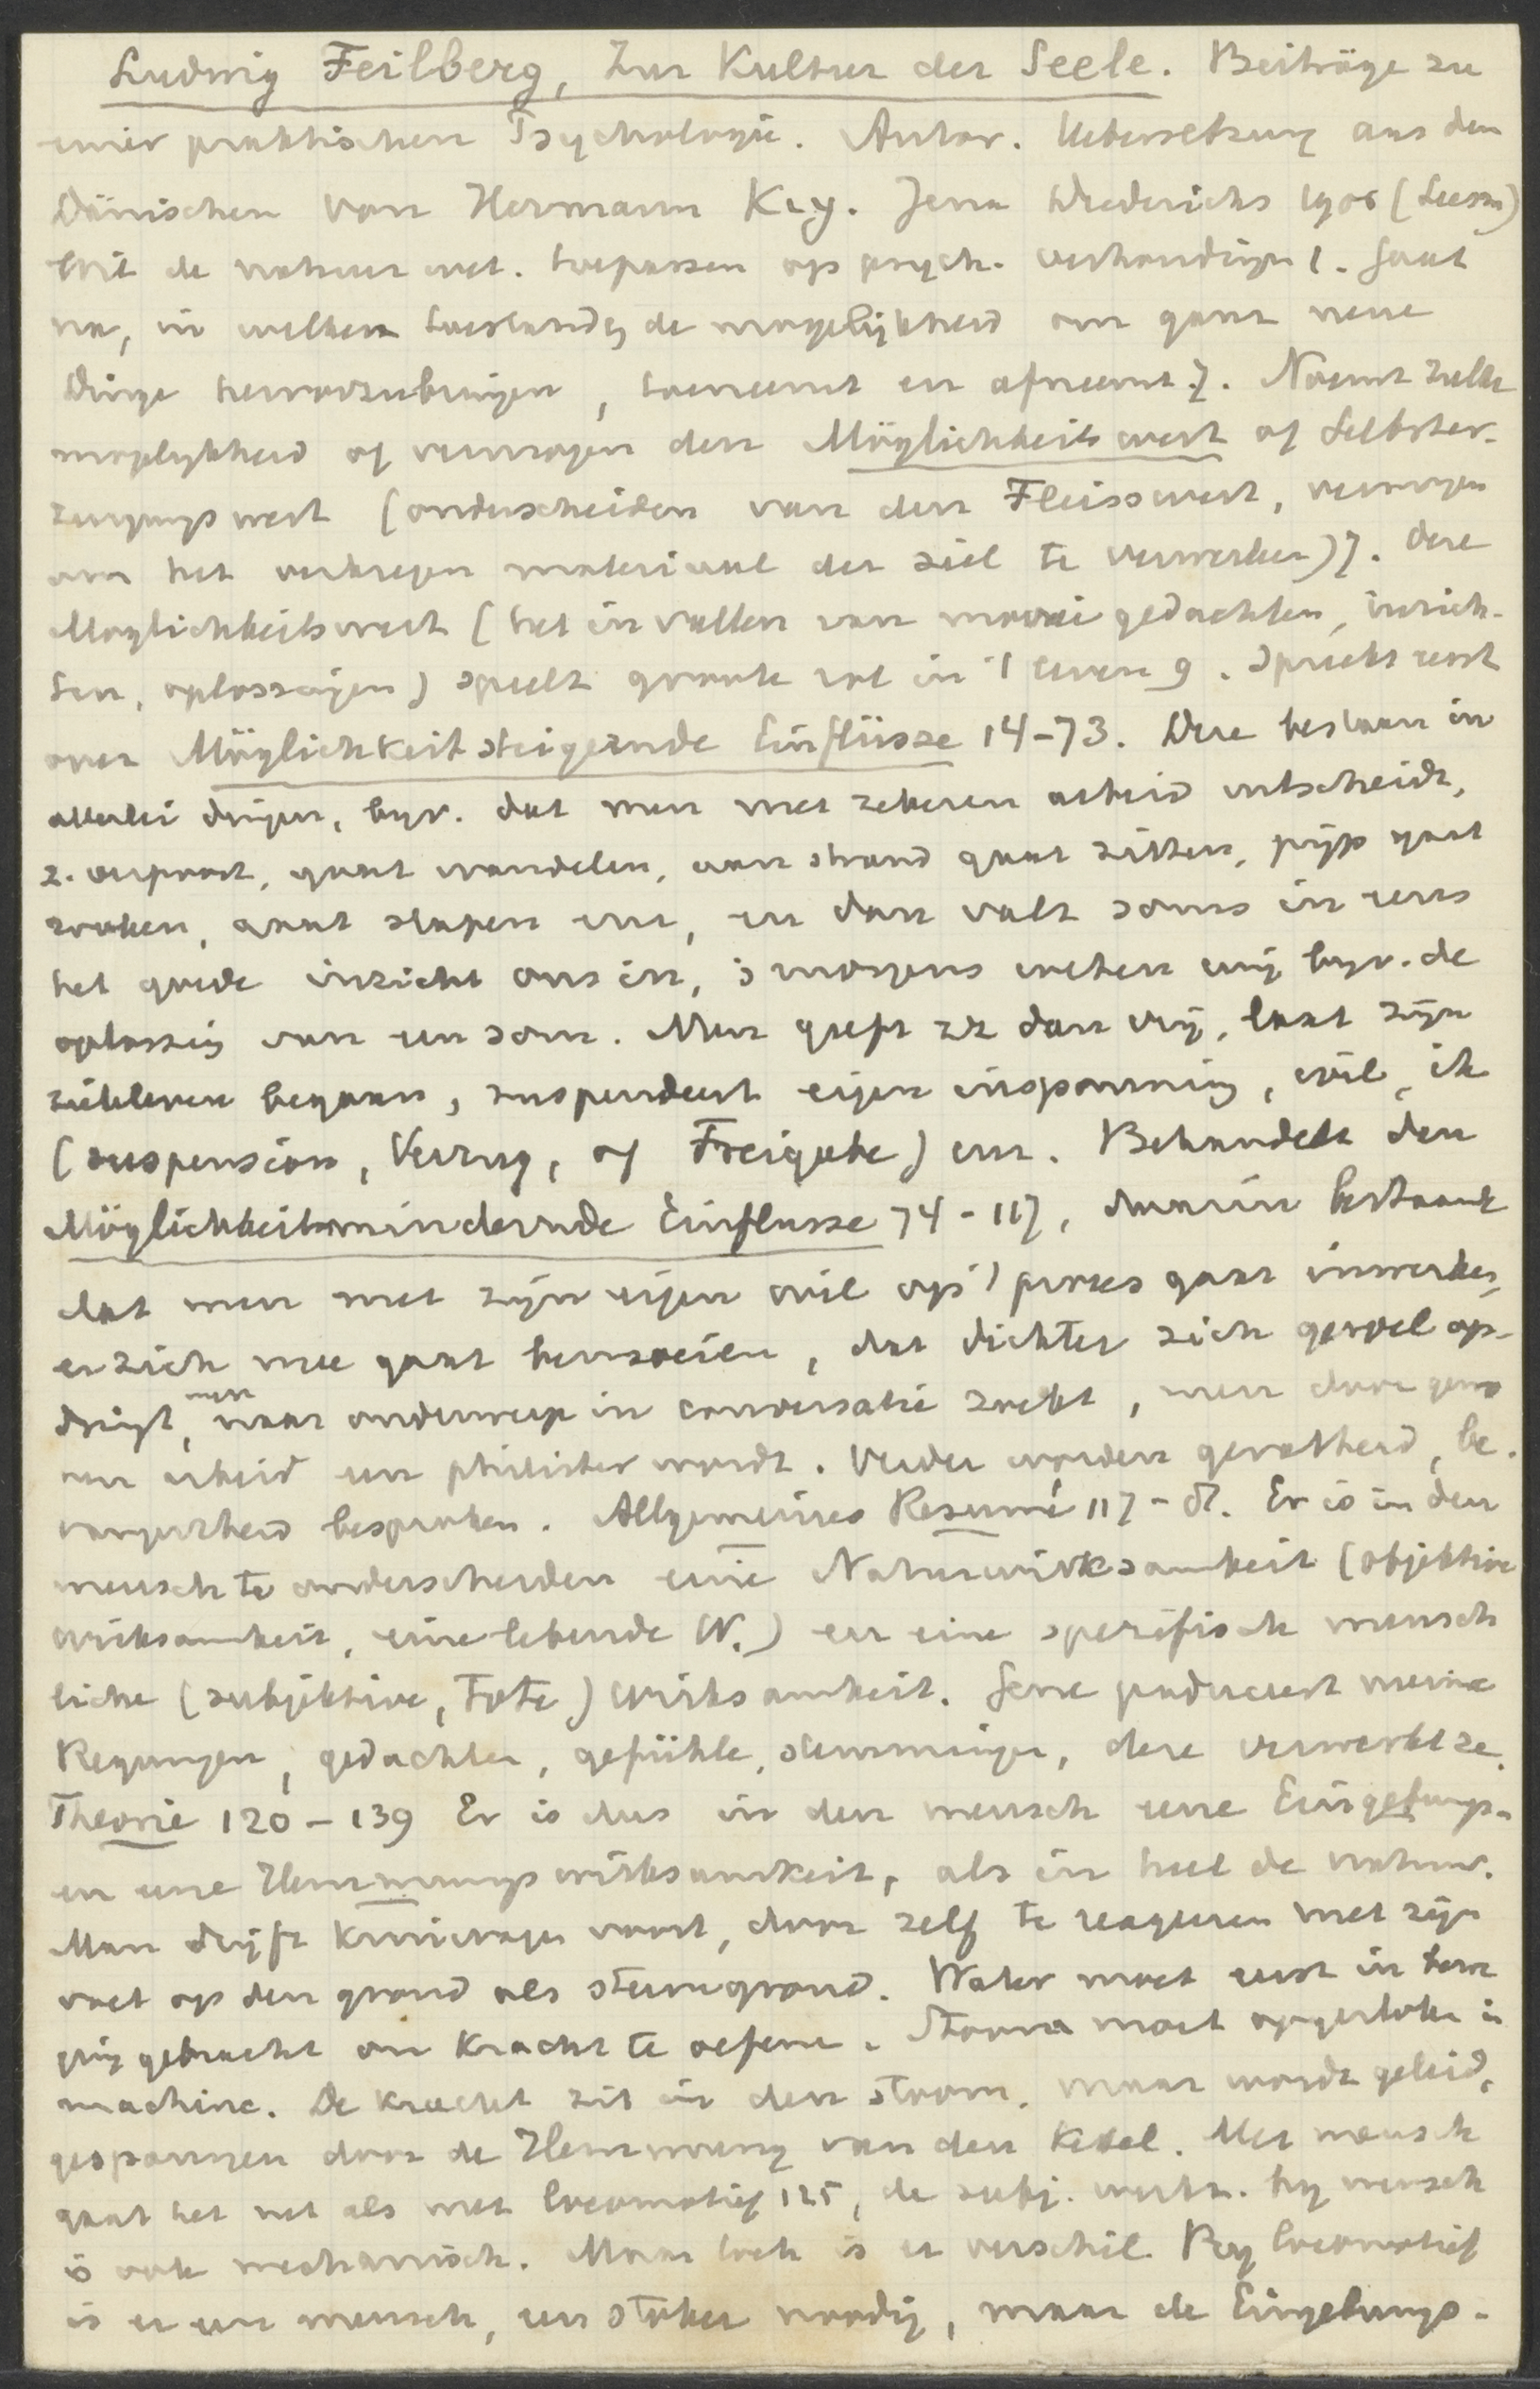 Ludwig Feilberg, Zur Kultur der Seele. Beiträge zu
einer praktischen Psychologie. Autor. Uebersetzung aus dem
Dänischen von Hermann Key. Jena Diederichs 1906 (Leesm)
Wil de natuurwet. toepassen op psych. Gaat
na, in welken toestand de mogelijkheid om ganz neue
Dinge hervorzubringen, toeneemt en afneemt 7. Noemt zulke
mogelijkheid of vermogen den Möglichkeitswert of Selbster-
zeugungswert (onderscheiden van den Fleisswert, vermogen
om het verkregen materiaal der ziel te verwerken) 7. Deze
Möglichkeitswert (het invallen van mooie gedachten, inzich-
ten, oplossingen) speelt groote rol in 't leven 9. Spreekt eerst
over Möglichkeitsteigernde Einflüsse 14-73. Deze bestaan in
allerlei dingen, byv. dat men met zekeren arbeid uitscheidt,
z. ontspant, gaat wandelen, aan strand gaat zitten, pijp gaat
rooken, gaat slapen enz, en dan valt soms in eens
het goede inzicht ons in, 's morgens weten wij byv. de
oplossing van een som. Men geeft zz dan vrij, laat zijn
zieleleven begaan, suspendeert eigen inspanning, wil, ik
(suspension, Verzug, of Freigabe) enz. Behandelt den
Möglichkeitsmindernde Einflusse 74-117, daarin bestaande
dat men met zijn eigen wil op 't proces gaat inwerken,
er zich mee gaat bemoeien, dat dichter zich gevoel op-
dringt, men naar onderwerp in conversatie zoekt, men door gewo
nen arbeid een philister wordt. Verder worden be-
vangenheid besproken. Allgemeines Resumé 117-. Er is in den
mensch te onderscheiden eine Naturwirksamkeit (objektive
wirksamkeit, eine lebende W.) en eine spezifisch mensch
liche (subjektive, Tote) wirksamkeit. Gene produceert meine
Regungen, gedachten, gefühle, stemmingen, deze verwerkt ze.
Theorie 120-139 Er is dus in den mensch eene Eingebungs-
en eene Hemmungswirksamkeit, als in heel de natuur.
Man drijft voort, door zelf te reageren met zijn
voet op den grond als steungrond. Water moet eerst in bewe
ging gebracht om kracht te oefenen. Stoom moet opgesloten in
machine. De kracht zit in den stoom, maar wordt geleid,
gespannen door de Hemmung van den ketel. Met mensch
gaat het net als met locomotief 125, de subj. werkz. by mensch
is ook mechanisch. Maar toch is er verschil. By locomotief
is er een mensch, een stoker noodig, maar de Eingebungs-